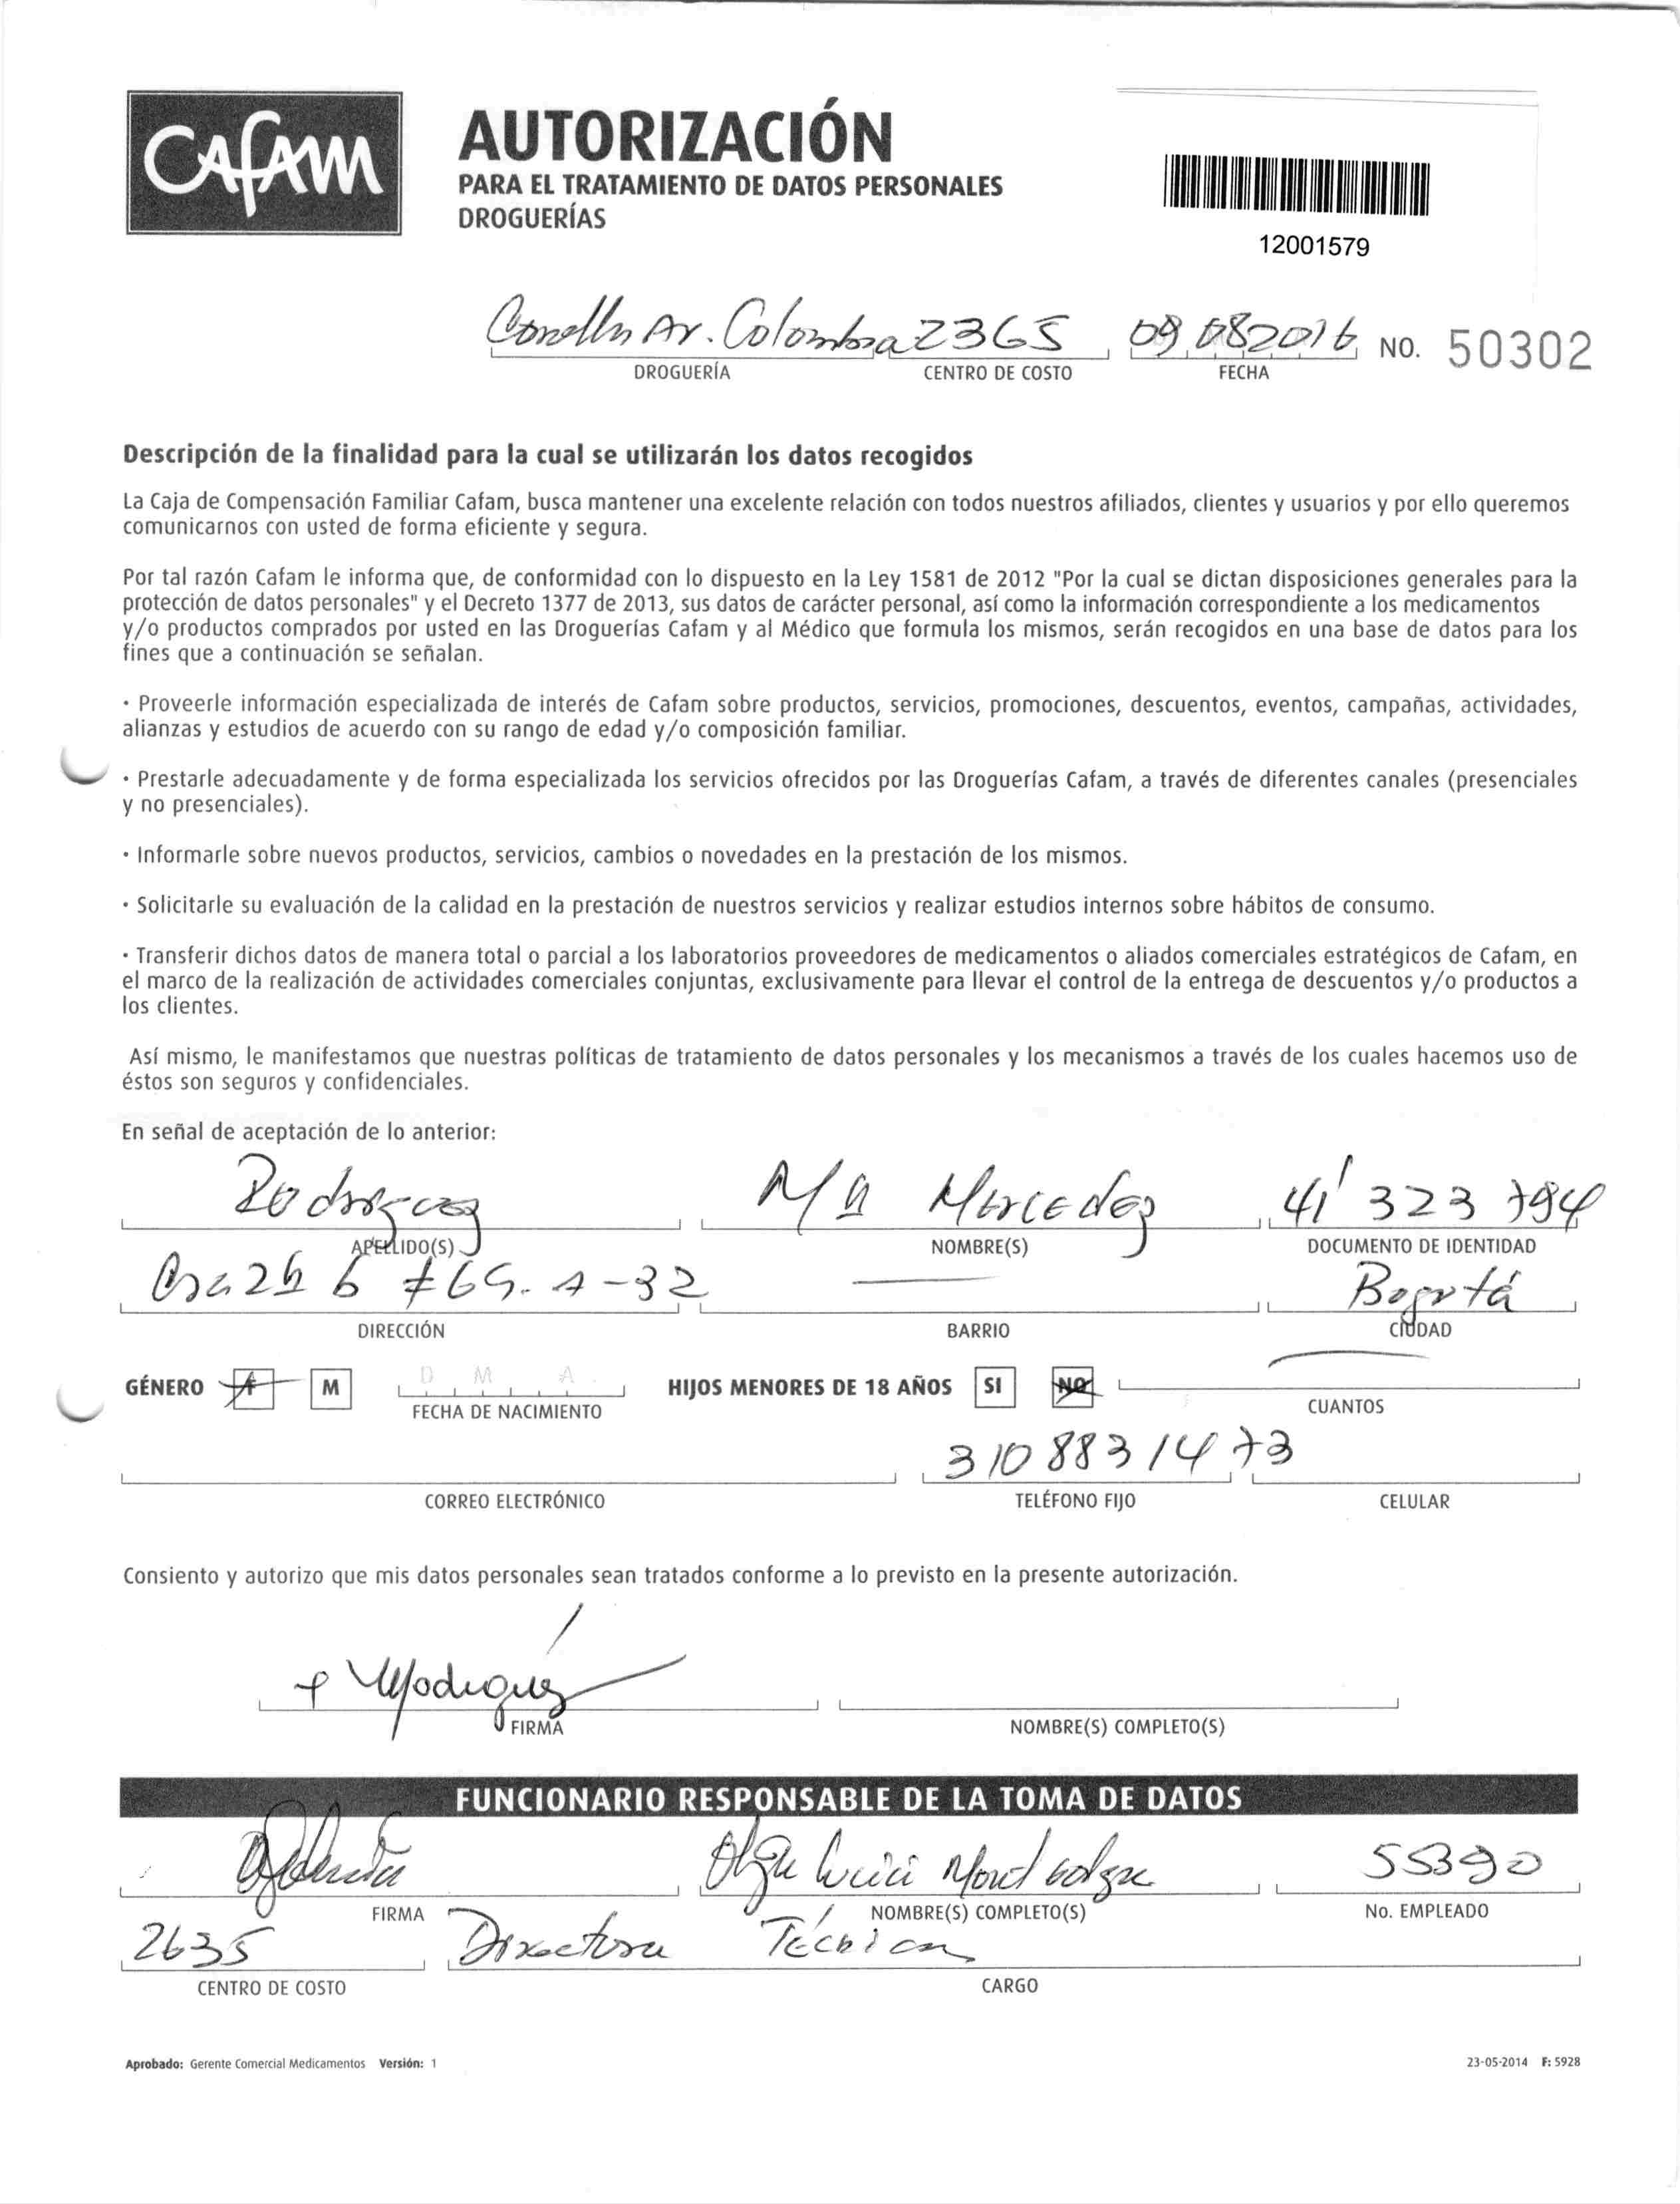 CAFAM
AUTORIZACIÓN
PARA EL TRATAMIENTO DE DATOS PERSONALES
DROGUERÍAS
12001579
Av. Colombia 2365 09 08 2016 NO. 50302
DROGUERÍA CENTRO DE COSTO FECHA
Descripción de la finalidad para la cual se utilizarán los datos recogidos
La Caja de Compensación Familiar Cafam, busca mantener una excelente relación con todos nuestros afiliados, clientes y usuarios y por ello queremos
comunicarnos con usted de forma eficiente y segura.
Por tal razón Cafam le informa que, de conformidad con lo dispuesto en la Ley 1581 de 2012 "Por la cual se dictan disposiciones generales para la
protección de datos personales" y el Decreto 1377 de 2013, sus datos de carácter personal, así como la información correspondiente a los medicamentos
y/o productos comprados por usted en las Droguerías Cafam y al Médico que formula los mismos, serán recogidos en una base de datos para los
fines que a continuación se señalan.
· Proveerle información especializada de interés de Cafam sobre productos, servicios, promociones, descuentos, eventos, campañas, actividades,
alianzas y estudios de acuerdo con su rango de edad y/o composición familiar.
· Prestarle adecuadamente y de forma especializada los servicios ofrecidos por las Droguerías Cafam, a través de diferentes canales (presenciales
y no presenciales).
· Informarle sobre nuevos productos, servicios, cambios o novedades en la prestación de los mismos.
· Solicitarle su evaluación de la calidad en la prestación de nuestros servicios y realizar estudios internos sobre hábitos de consumo.
· Transferir dichos datos de manera total o parcial a los laboratorios proveedores de medicamentos o aliados comerciales estratégicos de Cafam, en
el marco de la realización de actividades comerciales conjuntas, exclusivamente para llevar el control de la entrega de descuentos y/o productos a
los clientes.
Así mismo, le manifestamos que nuestras políticas de tratamiento de datos personales y los mecanismos a través de los cuales hacemos uso de
éstos son seguros y confidenciales.
En señal de aceptación de lo anterior:
Rodriguez Ma Mercedez 41'323 794
APELLIDO(S) NOMBRE(S) DOCUMENTO DE IDENTIDAD
# 69. A-32 Bogotá
DIRECCIÓN BARRIO CIUDAD
GÉNERO F M D M A HIJOS MENORES DE 18 AÑOS SI NO
FECHA DE NACIMIENTO CUANTOS
310 8831473
CORREO ELECTRÓNICO TELÉFONO FIJO CELULAR
Consiento y autorizo que mis datos personales sean tratados conforme a lo previsto en la presente autorización.
FIRMA NOMBRE(S) COMPLETO(S)
FUNCIONARIO RESPONSABLE DE LA TOMA DE DATOS
Olga Lucia 55390
FIRMA NOMBRE(S) COMPLETO(S) No. EMPLEADO
2635 Directora Técnica
CENTRO DE COSTO CARGO
Aprobado: Gerente Comercial Medicamentos Versión: 1 23-05-2014 F: 5928